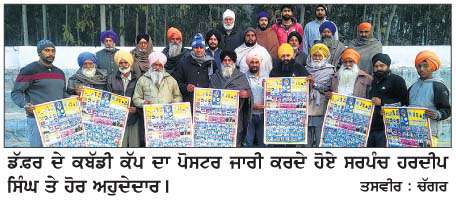 ਡੱ.ਫਰ ਦੇ ਕਬੱਡੀ ਕੱਪ ਦਾ ਪੋਸਟਰ ਜਾਰੀ ਕਰਦੇ ਹੋਏ ਸਰਪੰਚ ਹਰਦੀਪ
ਸਿੰਘ ਤੇ ਹੋਰ ਅਹੁਦੇਦਾਰ। ਤਸਵੀਰ : ਚੱਗਰ